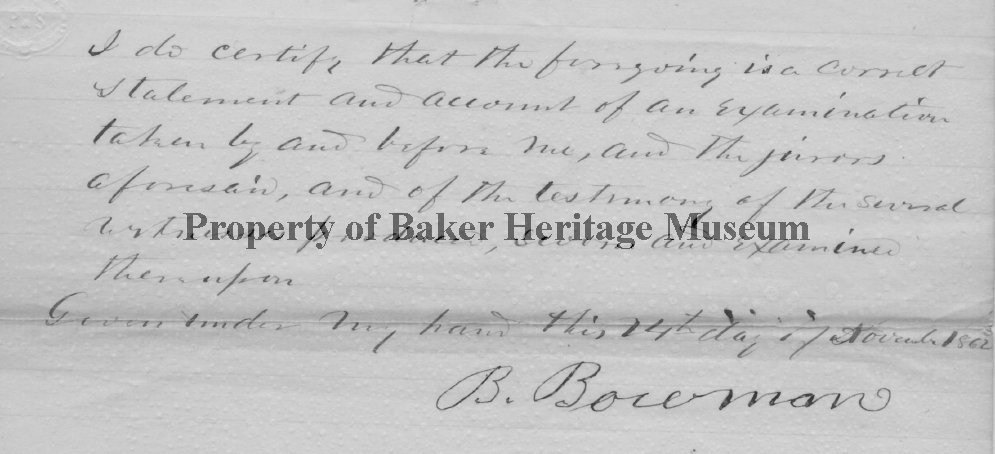 I do certify that the forregoing is a correct
Statement and account of an examination
taken by and before me, and the jurors
aforesaid, and of the testimony of the several
Property of Baker Heritage Museum
and examined
thereupon
Given under my hand this 14th day of November 1862
B. Bowman